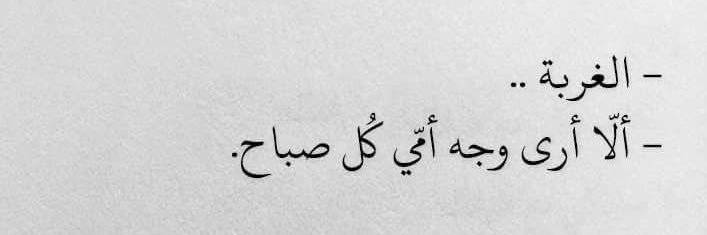 – الغربة ..
– ألّا أرى وجه أمّي كُل صباح.